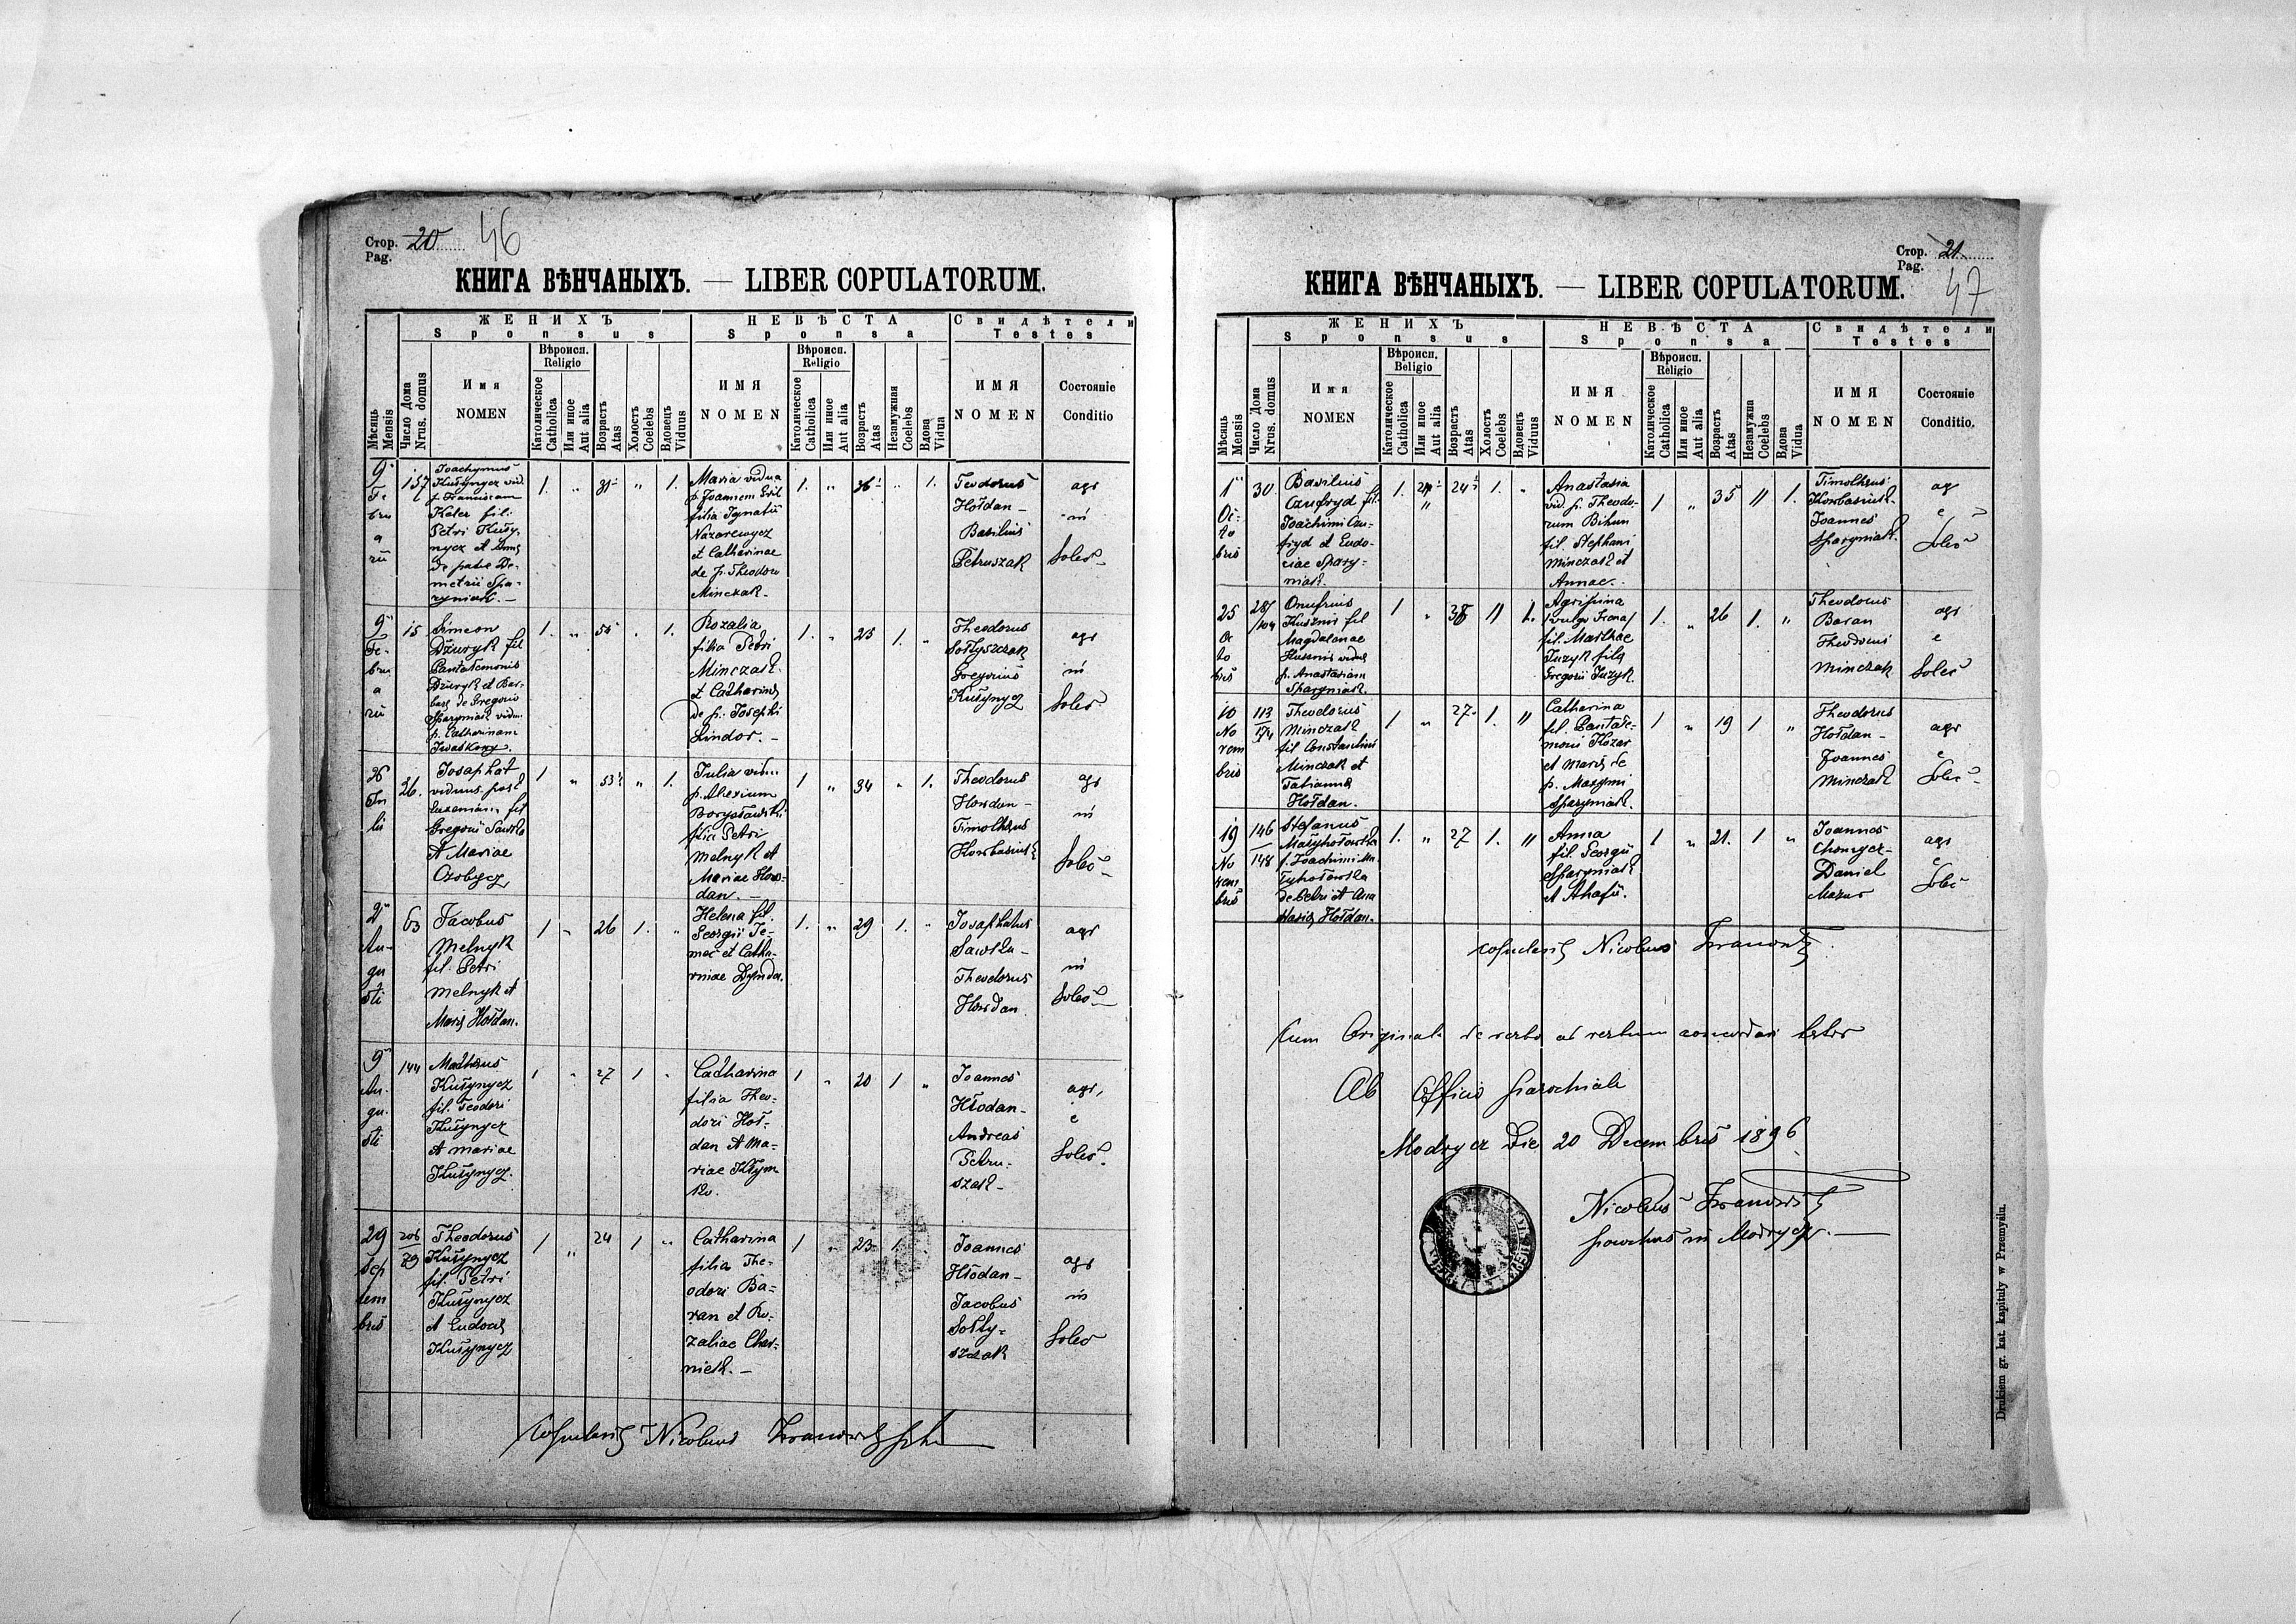 Стор. 20 46
Pag.
КНИГА ВѢНЧАНЫХЪ. — LIBER COPULATORUM.
ЖЕНИХЪ
Sponsus
НЕВѢСТА
Sponsa
Свидѣтели
Testes
Мѣсяць
Mensis
Число Дома
Nrus. domus
Имя
NOMEN
Вѣроисп.
Religio
Католическое
Catholica
Или иное
Aut alia
Возрастъ
Atas
Холостъ
Coelebs
Вдовецъ
Viduus
ИМЯ
NOMEN
Вѣроисп.
Religio
Католическое
Catholica
Или иное
Aut alia
Возрастъ
Atas
Незамужная
Coelebs
Вдова
Vidua
ИМЯ
NOMEN
Состояніе
Conditio
9
Fe
bru
a
rii
157
Joachymus
Kušynycz vid.
p. Franciscam
Kater fil.
Petri Kušy-
nycz et Annę
de patre De-
metrii Spa-
ryniak. —
1. „ 31 „ 1.
Maria vidua
p. Joannem
filia Ignatii
Nazarewycz
et Catharinae
de p. Theodoro
Minczak -
1. „ 36 „ 1.
Teodorus
Hołdan -
Basilius
Petruszak
agr
in
Solec
9
Fe-
bru
a
rii
15
Simeon
Džuryk fil
Pantalemonis
Džuryk et Bar-
barę de Gregorio
Sparyniak vidu.
p. Catharinam
Iwaskony.
1. „ 55 „ 1.
Rozalia
filia Petri
Minczak
et Catharinę
de p. Josephi
Lindor. —
1. „ 25 1. „
Theodorus
Sołtyszczak
Gregorius
Kušynycz
agr
in
Solec
26
Ju
lii
26.
Josaphat
viduus post
fil
Gregorii Sawka
et Mariae
Czobycz
1 „ 53 „ 1.
Julia vidu.
p. Alexium
Borysławski
filia Petri
Melnyk et
Mariae How-
dan. —
1 „ 34 „ 1.
Theodorus
Howdan -
Timotheus
Kowbasiuk
agr
in
Solec
2
Au-
gu
sti
63
Jacobus
Melnyk
fil. Petri
Melnyk et
Marię Hołdan.
1 „ 26 1. „
Helena fil.
Georgii Je-
mec et Catha-
rinae Dynda.
1. „ 29 1. „
Josaphatus
Sawka -
Theodorus
Howdan
agr
in
Solec
9
Au-
gu-
sti
144
Matheus
Kušynycz
fil. Teodori
Kušynycz
et Mariae
Kušynycz.
1 „ 27 1 „
Catharina
filia Theo-
dori Hoł-
dan et Ma-
riae Klym
ko.
1 „ 20 1 „
Joannes
Hłodan -
Andreas
Petru-
szak -
agr,
e
Solec.
29
Sep
tem
bris
206
29
Theodorus
Kušynycz
fil. Petri
Kušynycz
et Eudoxię
Kušynycz
1 „ 24 1 „
Catharina
filia The-
odori Ba-
ran et Ro-
zaliae Cher-
niek. —
1 „ 23 1
Joannes
Hłodan -
Jacobus
Sołty-
szczak
agr
in
Solec
Nicolaus
Стор. 21
Pag. 47
КНИГА ВѢНЧАНЫХЪ. — LIBER COPULATORUM.
ЖЕНИХЪ
Sponsus
НЕВѢСТА
Sponsa
Свидѣтели
Testes
Мѣсяць
Mensis
Число Дома
Nrus. domus
Имя
NOMEN
Вѣроисп.
Beligio
Католическое
Catholica
Или иное
Aut alia
Возрастъ
Atas
Холостъ
Coelebs
Вдовецъ
Viduus
ИМЯ
NOMEN
Вѣроисп.
Religio
Католическое
Catholica
Или иное
Aut alia
Возрастъ
Atas
Незамужна
Coelebs
Вдова
Vidua
ИМЯ
NOMEN
Состояніе
Conditio.
1
Oc-
to
bris
30
Basilius
Czufryd fil.
Joachimi Czu-
fryd et Eudo-
ciae Spary-
niak.
1. „ 24 1. „
Anastasia
vid. p. Theodo-
rum Bihun
fil. Stephani
Minczak et
Annae.
1 „ 35 „ 1.
Timotheus
Kowbasiuk.
Joannes
Sparyniak.
ag
e
Solec
25
Oc
to
bris
287
/104
Onufrius
Kusznir fil
Magdalenae
Kusznir vidu
p. Anastasiam
Sparyniak.
1 „ 38 „ 1.
Agripina
/vulgo Irena/
fil. Marthae
Juzyk filę
Gregorii Juzyk.
1. „ 26 1. „
Theodorus
Baran
Theodorus
Minczak
agr
e
Solec
10
No
vem
bris
113
174
Theodorus
Minczak
fil Constantini
Minczak et
Tatiannę
Hołdan.
1 „ 27 1. „
Catharina
fil. Pantale-
moni Kozar
et Marię de
p. Maxymi
Sparyniak.
1 „ 19 1 „
Theodorus
Hołdan -
Joannes
Minczak
agr
e
Solec
19
No
vem
bris
146
148
Stefanus
f. Joachimi
de Petri et Ana
stasię Hołdan.
1. „ 27 1. „
Anna
fil. Georgii
Sparyniak
et Ahafii.
1 „ 21. 1 „
Joannes
Chomycz -
Daniel
Mazur
agr
e
Solec
Nicolaus
Cum Originali de verbo ad verbum concordari testor
Ab Officio parochiali
Modrycz Die 20 Decembris 1896
Nicolaus
parochus in Modrycz. —
Drukiem gr. kat. kapituły w Przemyślu.